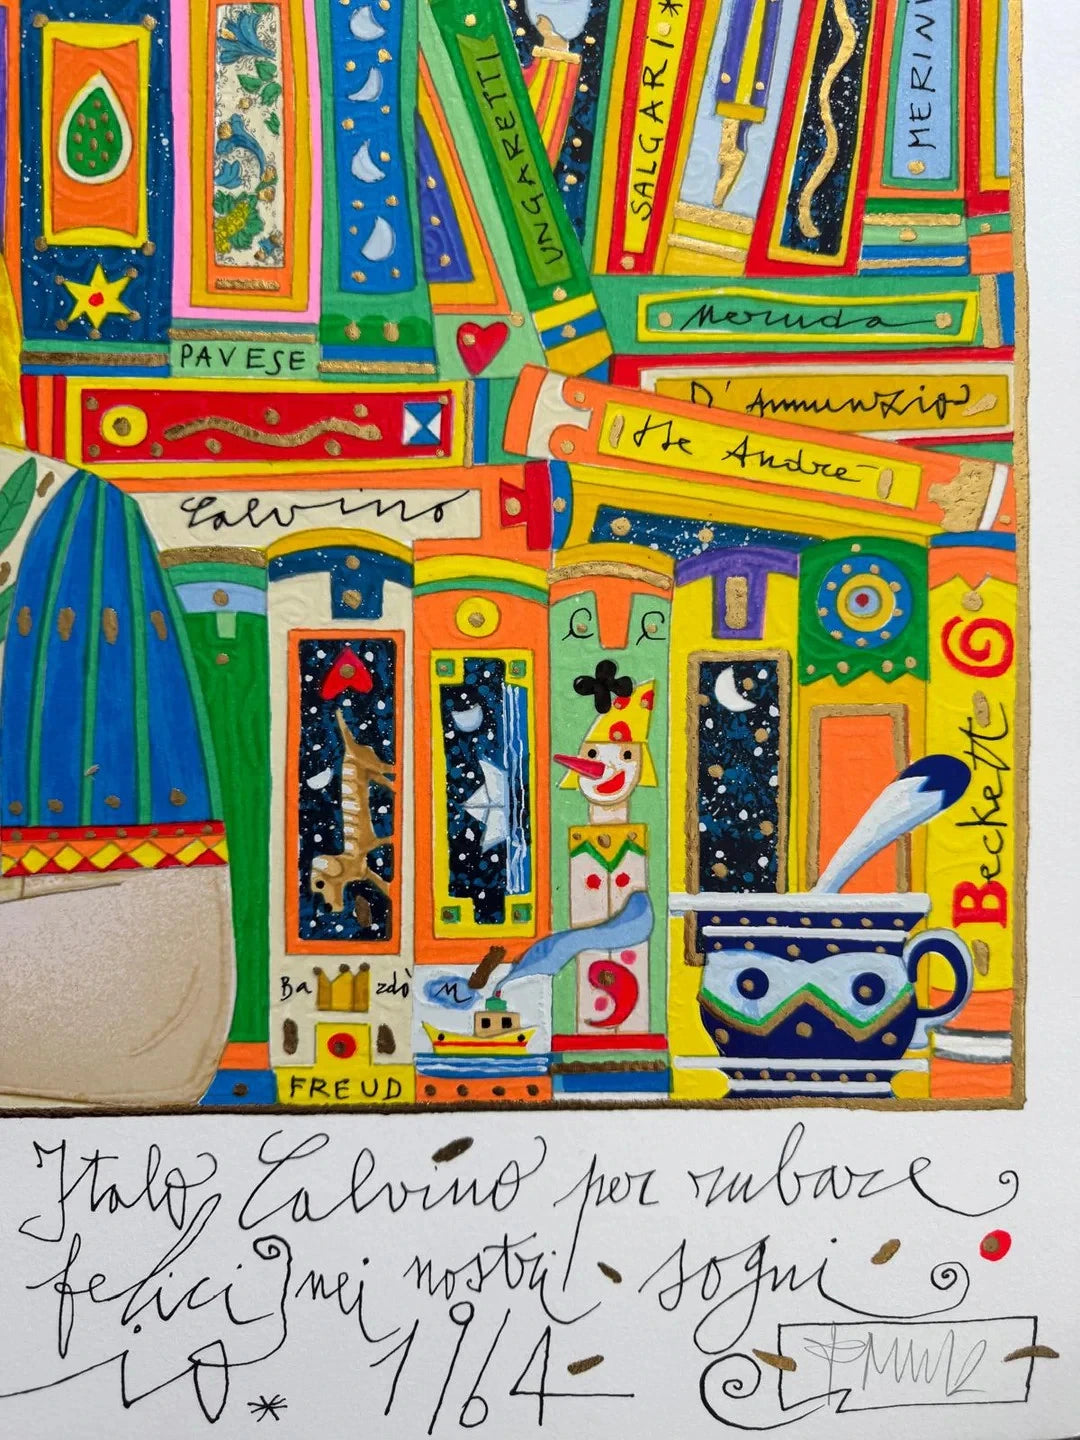 UNGARETTI
SALGARI *
MERINI
Neruda
PAVESE
D'Annunzio
De Andrè
Calvino
Beckett
Ba zdò
FREUD
Italo Calvino per rubare
felici nei nostri sogni
io * 1964